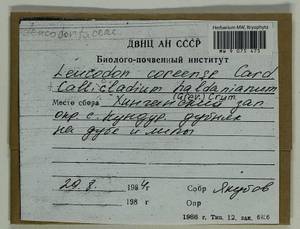 Leucodontaceae
Herbarium MW, Bryophyta
MW 9 073 475
ДВНЦ АН СССР
Биолого-почвенный институт
Leucodon coreense Card
+ Callicladium haldanianum
(Grev.) Crum
Место сбора Хинганский зап
окр с. Кундур дубняк
на дубе и липы
29.8. 1984г
198 г
Собр Якубов
Опр
1986 г. Тип. 12, зак. 6416